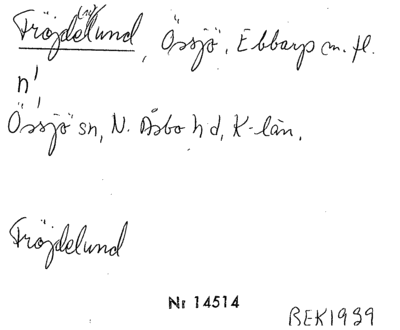 Fröjdelund, Össjö, Ebbarp m. fl.
n'
Össjö sn, N. Åsbo hd, K-län.
Fröjdelund
Nr 14514
BEK1939